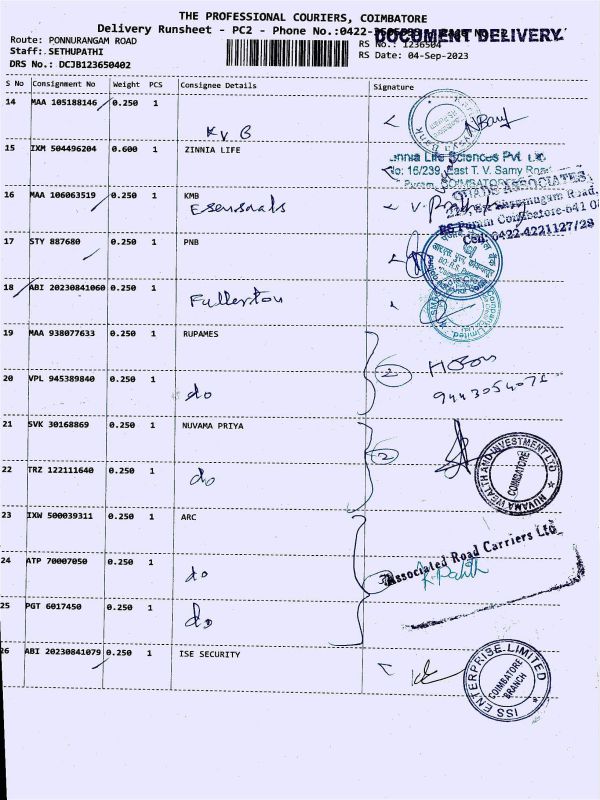 THE PROFESSIONAL COURIERS, COIMBATORE
Delivery Runsheet - PC2 - Phone No.:0422-
DOCUMENT DELIVERY.
Route: PONNURANGAM ROAD
RS No.: 1236504
Staff:.SETHUPATHI
RS Date: 04-Sep-2023
DRS No.: DCJB123650402
S No Consignment No Weight PCS Consignee Details Signature
14 MAA 105188146 0.250 1
KVB
15 IXM 504496204 0.600 1 ZINNIA LIFE
Zinnia Life Sciences Pvt. Ltd.
No: 16/239, East T. V. Samy Road
Puram, COIMBATORE
16 MAA 106063519 0.250 1 KMB
ASSOCIATES
Road,
RS Puram Coimbatore-641 0
Cell: 0422-4221127/28
17 STY 887680 0.250 1 PNB
18 ABI 20230841060 0.250 1
Fullerton
19 MAA 938077633 0.250 1 RUPAMES
2
20 VPL 945389840 0.250 1
do
21 SVK 30168869 0.250 1 NUVAMA PRIYA
2
NUVAMA WEALTH AND INVESTMENT LTD
COIMBATORE
22 TRZ 122111640 0.250 1
do
23 IXW 500039311 0.250 1 ARC
Associated Road Carriers Ltd
24 ATP 70007050 0.250 1
do
25 PGT 6017450 0.250 1
do
26 ABI 20230841079 0.250 1 ISE SECURITY
ISS ENTERPRISE LIMITED
COIMBATORE
BRANCH